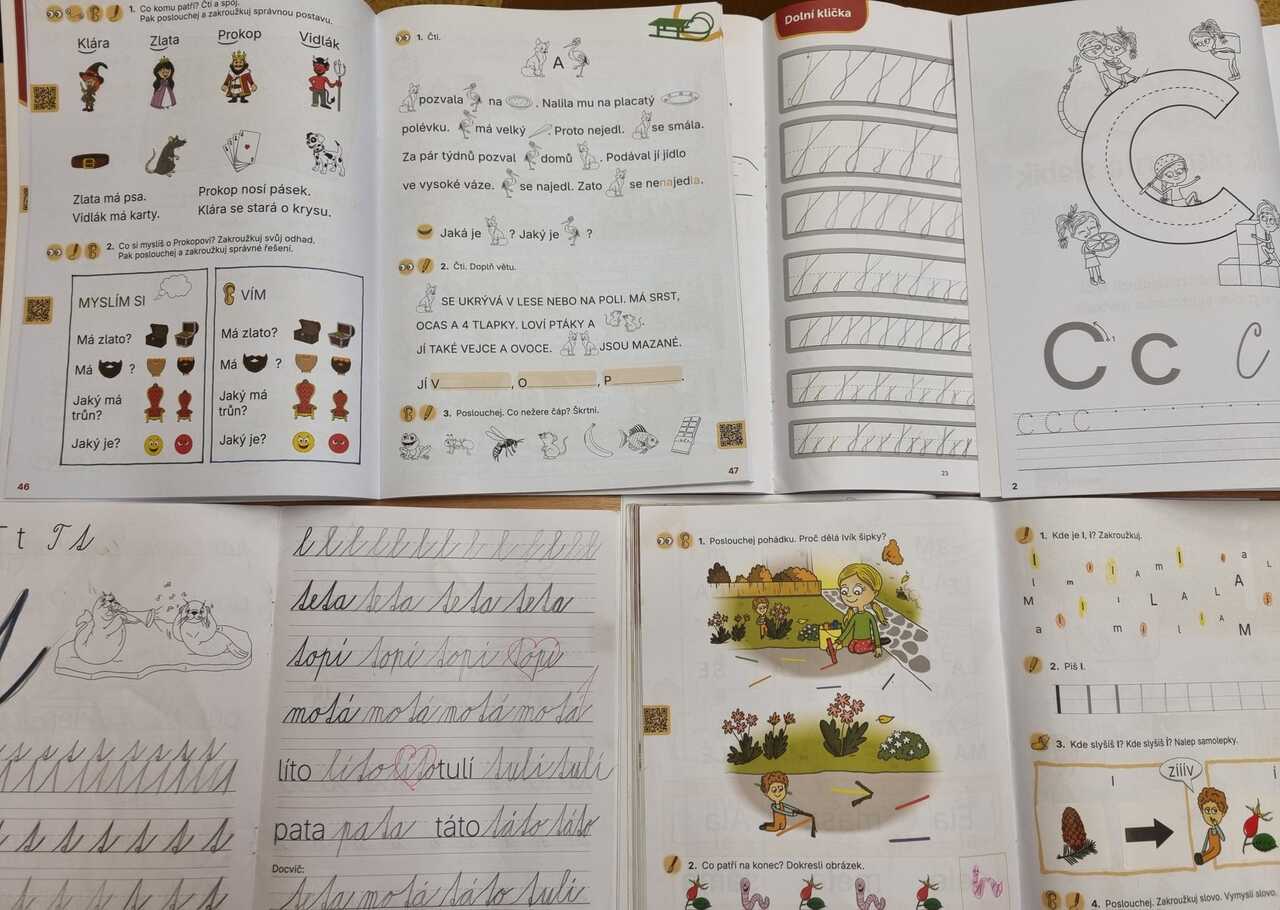 1. Co komu patří? Čti a spoj.
Pak poslouchej a zakroužkuj správnou postavu.
Klára Zlata Prokop Vidlák
Zlata má psa.
Vidlák má karty.
Prokop nosí pásek.
Klára se stará o krysu.
2. Co si myslíš o Prokopovi? Zakroužkuj svůj odhad.
Pak poslouchej a zakroužkuj správné řešení.
MYSLÍM SI
Má zlato?
Má ?
Jaký má
trůn?
Jaký je?
VÍM
Má zlato?
Má ?
Jaký má
trůn?
Jaký je?
46
1. Čti.
A
pozvala na . Nalila mu na placatý
polévku. má velký . Proto nejedl. se smála.
Za pár týdnů pozval domů . Podával jí jídlo
ve vysoké váze. se najedl. Zato se nenajedla.
Jaká je ? Jaký je ?
2. Čti. Doplň větu.
SE UKRÝVÁ V LESE NEBO NA POLI. MÁ SRST,
OCAS A 4 TLAPKY. LOVÍ PTÁKY A .
JÍ TAKÉ VEJCE A OVOCE. JSOU MAZANÉ.
JÍ V , O , P .
3. Poslouchej. Co nežere čáp? Škrtni.
47
Dolní klička
23
C
C c C
C C C
2
t T t
teta teta teta teta
topí topí topí topí
motá motá motá motá
líto líto líto tulí tulí tulí
pata pata táto táto táto
Docvič:
teta motá táto tulí
1. Poslouchej pohádku. Proč dělá lvík šipky?
2. Co patří na konec? Dokresli obrázek.
1. Kde je l, i? Zakroužkuj.
I l A m l i a
l m i l A L
M l i L A L A i
a i m i l A M
2. Piš I.
3. Kde slyšíš I? Kde slyšíš Í? Nalep samolepky.
I
zííív
í
4. Poslouchej. Zakroužkuj slovo. Vymysli slovo.